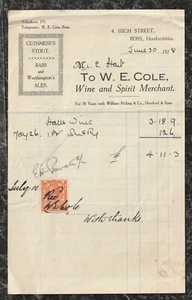 Telephone 177.
Telegrams: W. E. Cole, Ross.
4, HIGH STREET,
ROSS, Herefordshire,
June 30 1928
GUINNESS'S
STOUT.
BASS
and
Worthington's
ALES.
Mr. C. Hart
To W. E. COLE,
Wine and Spirit Merchant.
For 38 Years with William Pulling & Co., Hereford & Ross.
Wine 3-18.9
May 26. 12 6
£ 4-11-3
July 10
With thanks